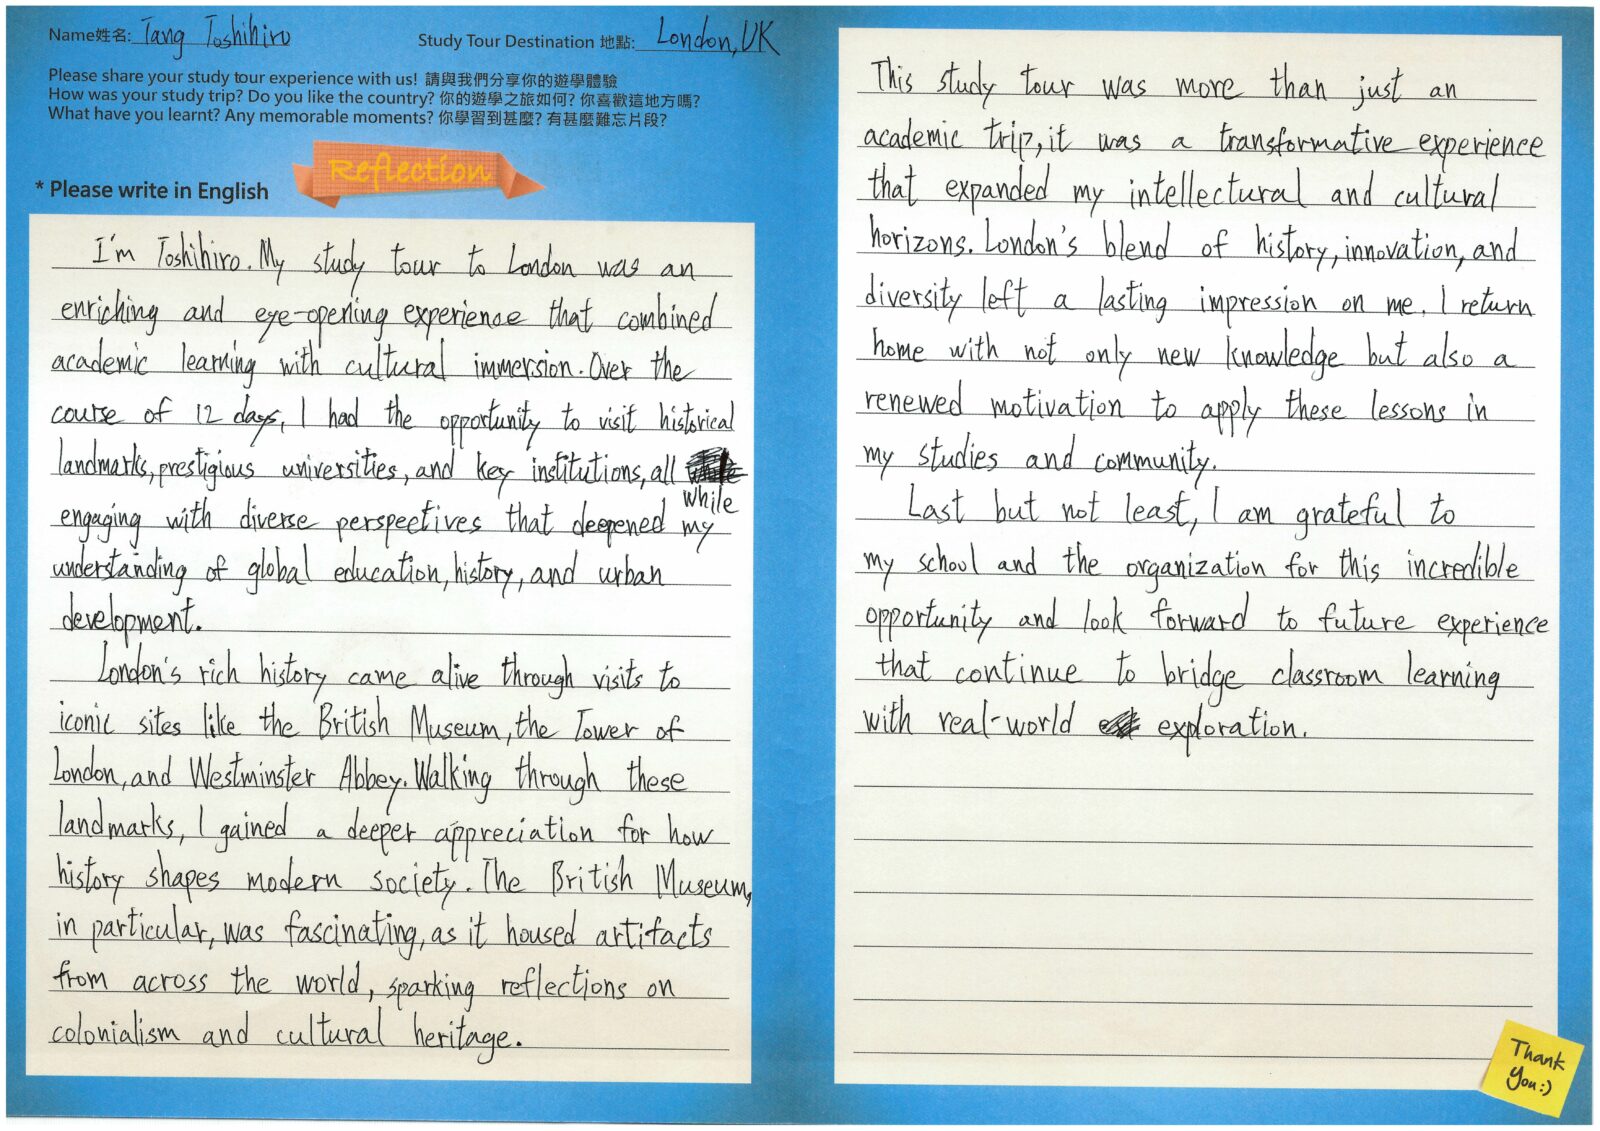 Name姓名: Tang Toshihiro
Study Tour Destination 地點: London, UK
Please share your study tour experience with us! 請與我們分享你的遊學體驗
How was your study trip? Do you like the country? 你的遊學之旅如何? 你喜歡這地方嗎?
What have you learnt? Any memorable moments? 你學習到甚麼? 有甚麼難忘片段?
Reflection
* Please write in English
I'm Toshihiro. My study tour to London was an
enriching and eye-opening experience that combined
academic learning with cultural immersion. Over the
course of 12 days, I had the opportunity to visit historical
landmarks, prestigious universities, and key institutions, all
while
engaging with diverse perspectives that deepened my
understanding of global education, history, and urban
development.
London's rich history came alive through visits to
iconic sites like the British Museum, the Tower of
London, and Westminster Abbey. Walking through these
landmarks, I gained a deeper appreciation for how
history shapes modern society. The British Museum,
in particular, was fascinating, as it housed artifacts
from across the world, sparking reflections on
colonialism and cultural heritage.
This study tour was more than just an
academic trip, it was a transformative experience
that expanded my intellectural and cultural
horizons. London's blend of history, innovation, and
diversity left a lasting impression on me. I return
home with not only new knowledge but also a
renewed motivation to apply these lessons in
my studies and community.
Last but not least, I am grateful to
my school and the organization for this incredible
opportunity and look forward to future experience
that continue to bridge classroom learning
with real-world exploration.
Thank
You:)